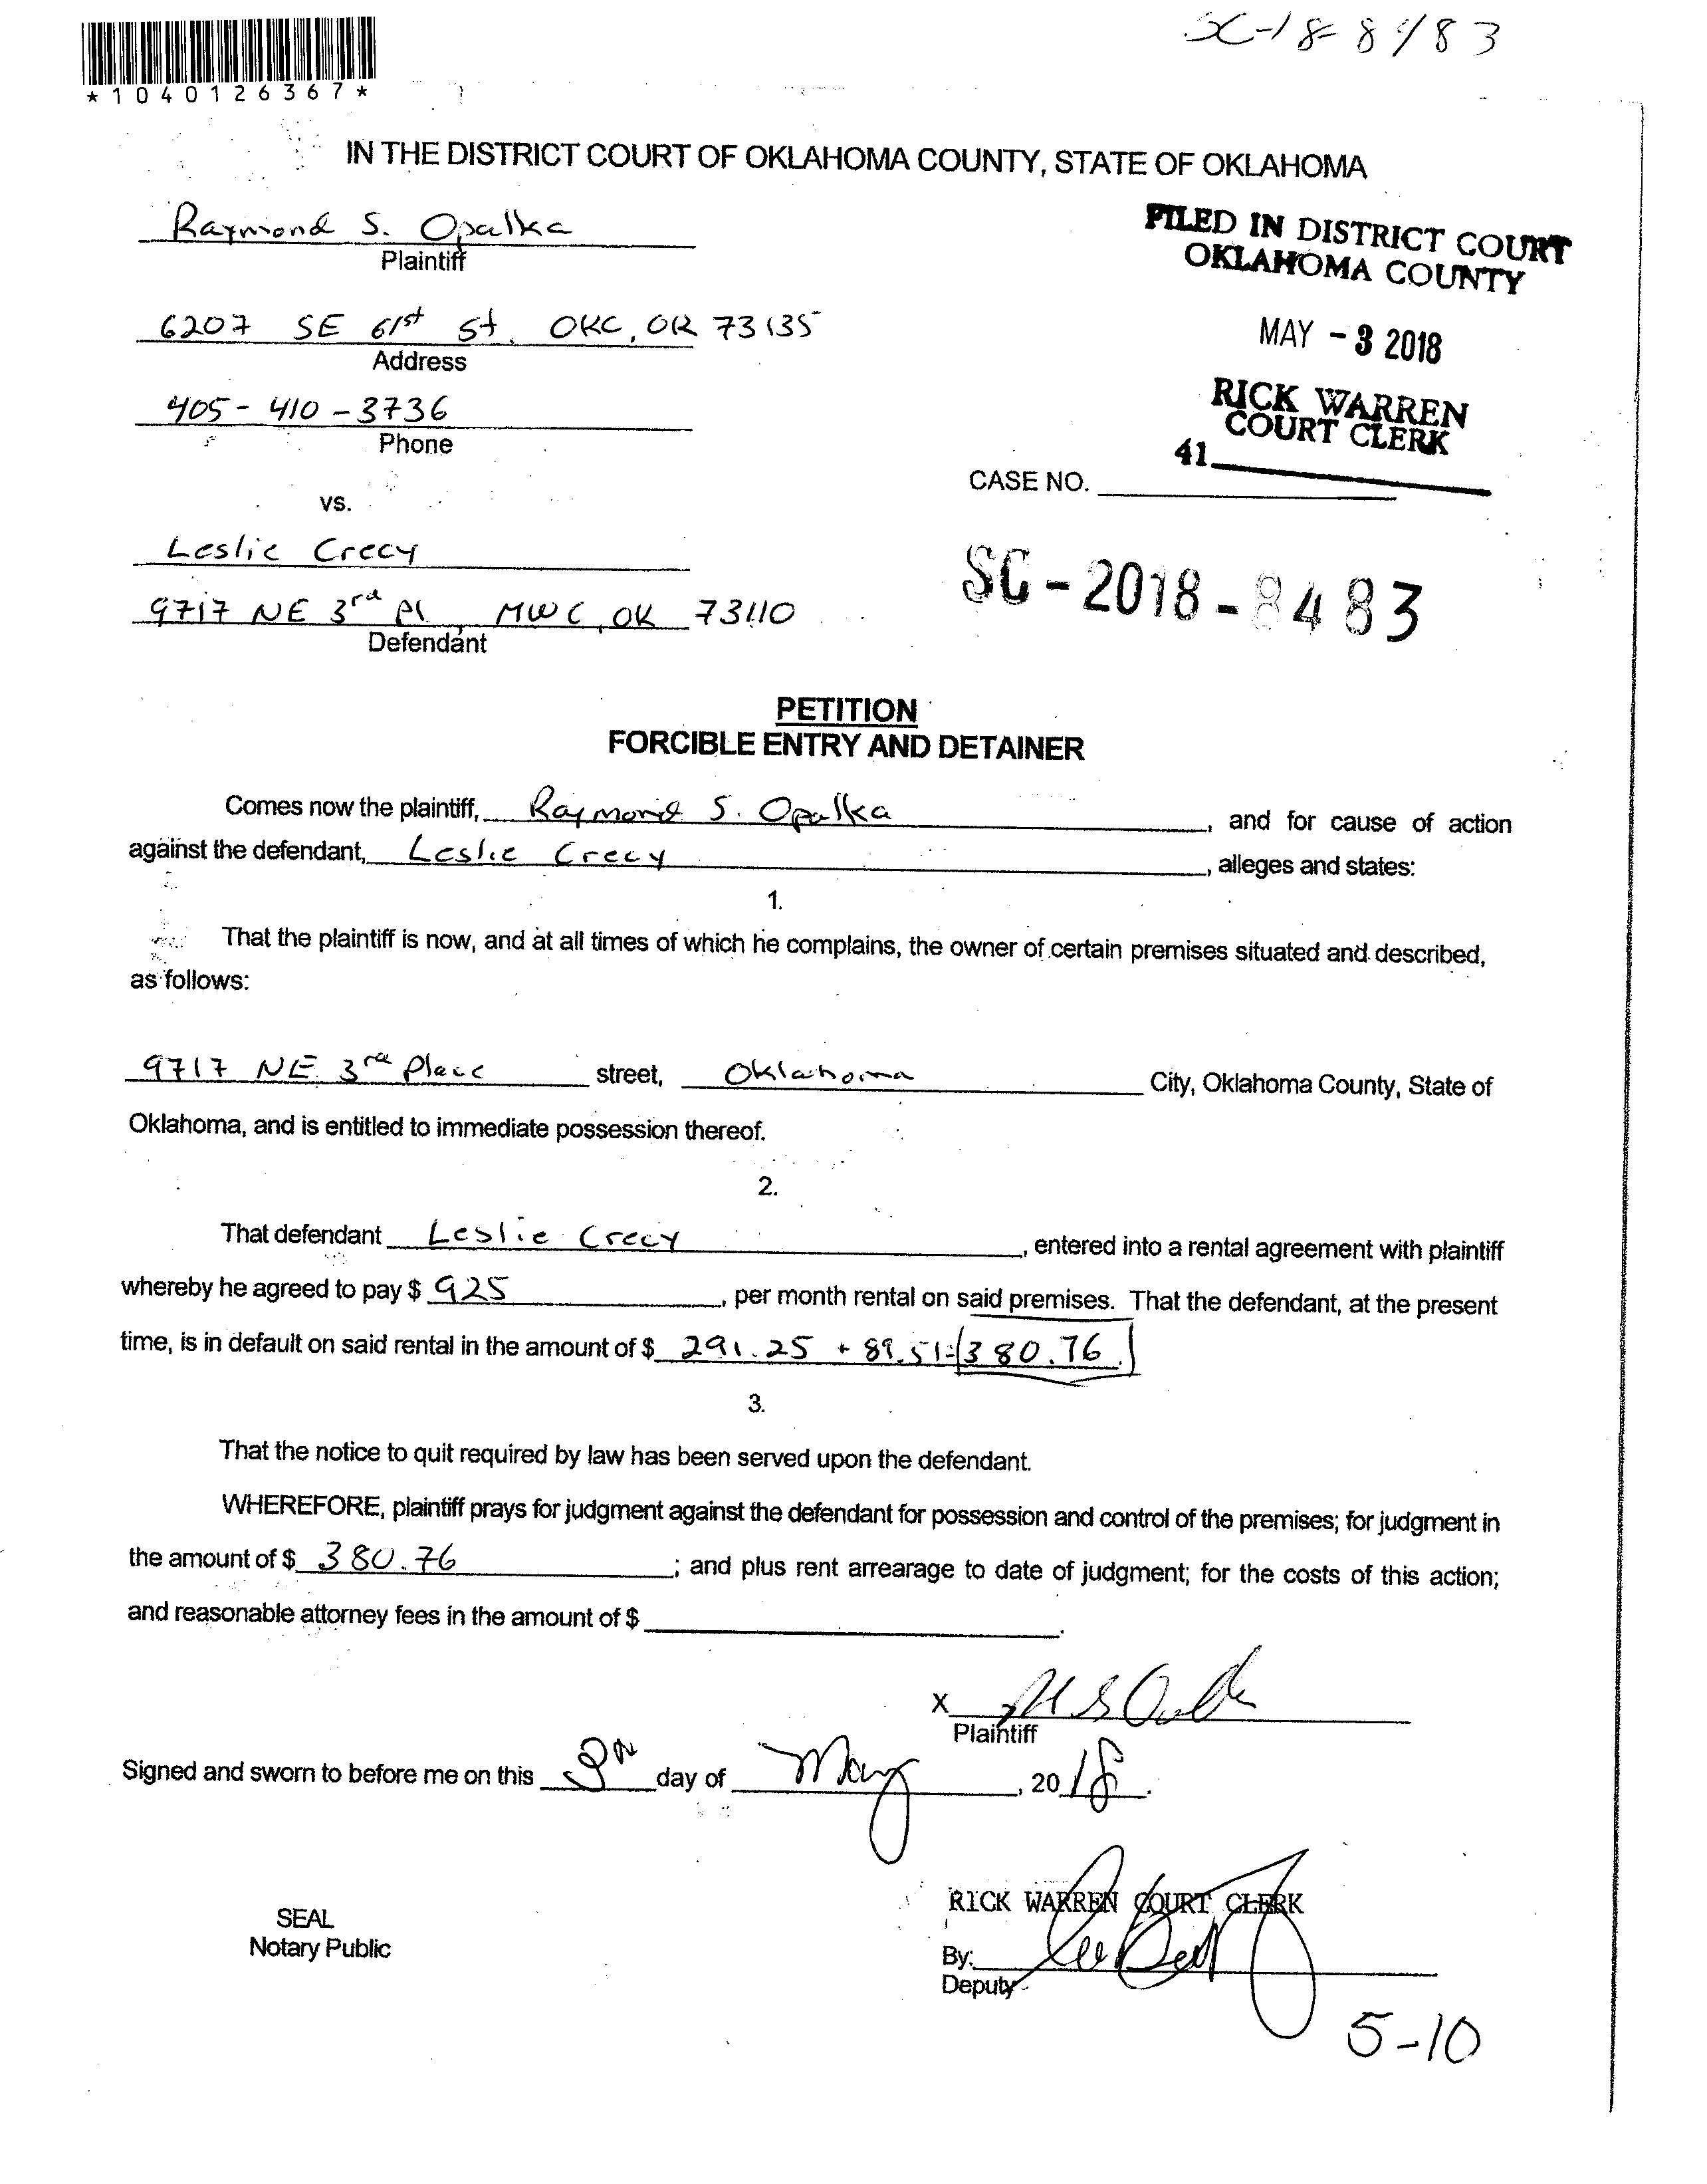 SC-18-8483
*1040126367*
IN THE DISTRICT COURT OF OKLAHOMA COUNTY, STATE OF OKLAHOMA
Raymond S. Opalka
Plaintiff
6207 SE 61st St. OKC, OK 73135
Address
405-410-3736
Phone
vs.
Leslie Crecy
9717 NE 3rd Pl, MWC, OK 73110
Defendant
FILED IN DISTRICT COURT
OKLAHOMA COUNTY
MAY - 3 2018
RICK WARREN
COURT CLERK
41
CASE NO.
SC - 2018 - 8483
PETITION
FORCIBLE ENTRY AND DETAINER
Comes now the plaintiff, Raymond S. Opalka, and for cause of action
against the defendant, Leslie Crecy, alleges and states:
1.
That the plaintiff is now, and at all times of which he complains, the owner of certain premises situated and described,
as follows:
9717 NE 3rd Place street, Oklahoma City, Oklahoma County, State of
Oklahoma, and is entitled to immediate possession thereof.
2.
That defendant Leslie Crecy, entered into a rental agreement with plaintiff
whereby he agreed to pay $ 925, per month rental on said premises. That the defendant, at the present
time, is in default on said rental in the amount of $ 291.25 + 89.51 = 380.76
3.
That the notice to quit required by law has been served upon the defendant.
WHEREFORE, plaintiff prays for judgment against the defendant for possession and control of the premises; for judgment in
the amount of $ 380.76; and plus rent arrearage to date of judgment; for the costs of this action;
and reasonable attorney fees in the amount of $.
X
Plaintiff
Signed and sworn to before me on this 3rd day of May, 2018.
SEAL
Notary Public
RICK WARREN COURT CLERK
By:
Deputy
5-10